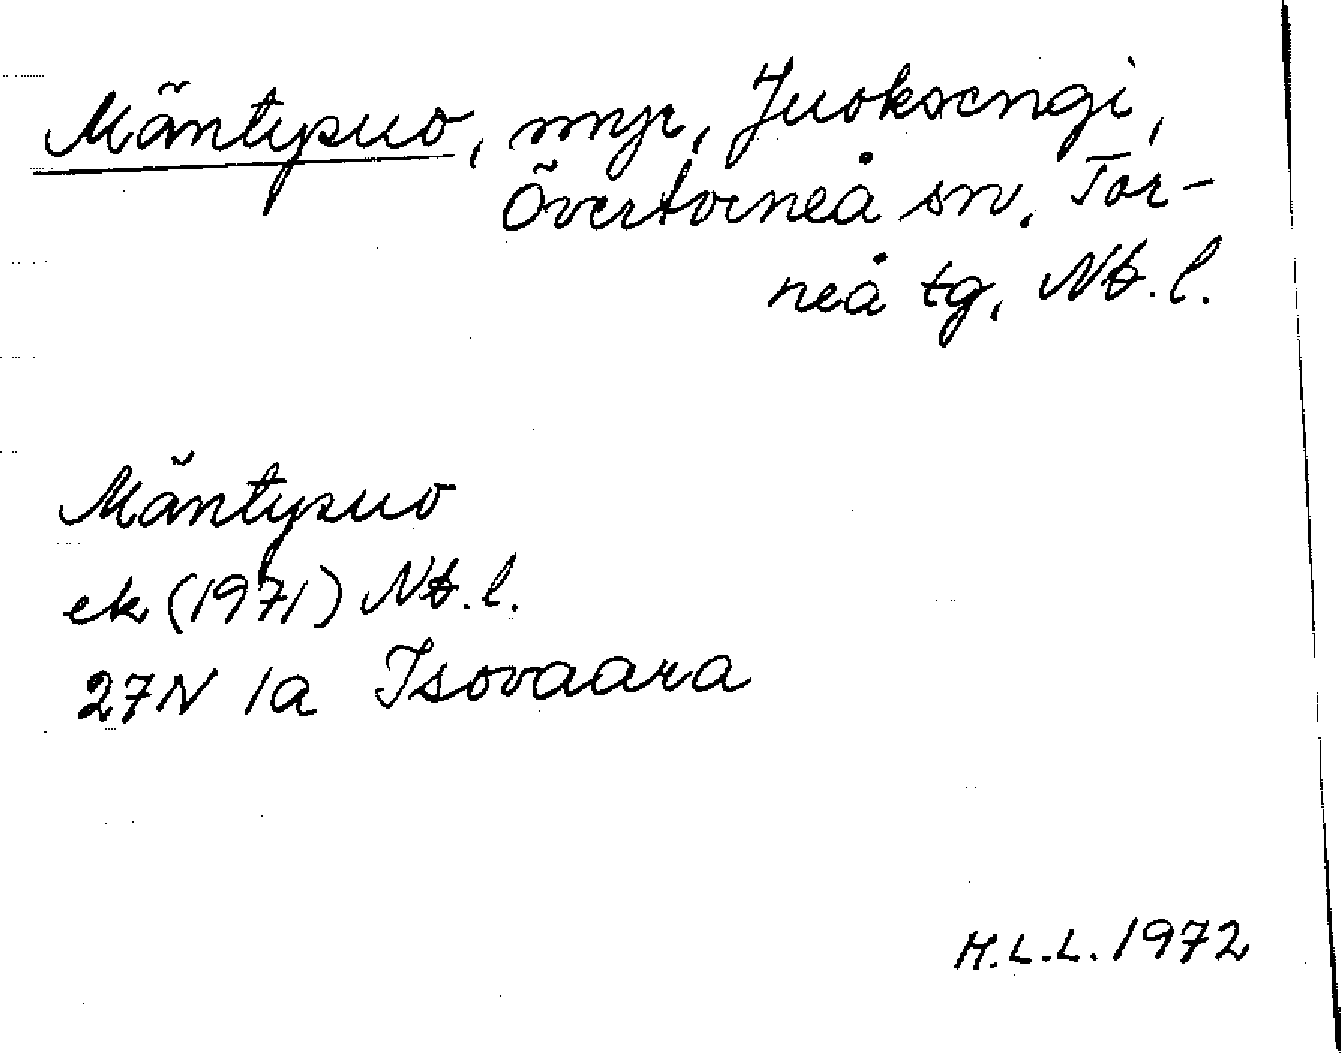 Mäntysuo, myr, Juoksengi,
Övertorneå sn, Tor-
neå tg, Nb.l.
Mäntysuo
ek (1971) Nb.l.
27N 1a Isovaara
H.L.L. 1972